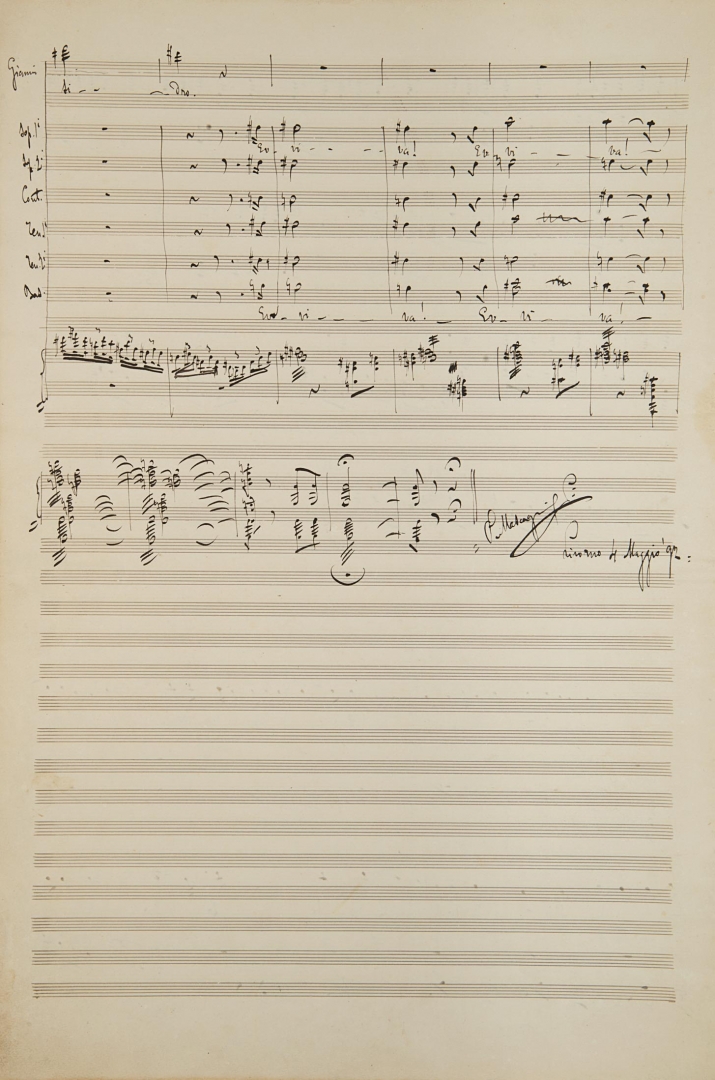 Gianni
si - - - dro.
Sop. 1i
Ev - vi - - - va! Ev - vi - - - va! -
Sop. 2i
Cont.
Ten. 1i
Ten. 2i
Bassi
Ev - vi - - - va! - - Ev - vi - va! -
P. Mascagni
Livorno 4 Maggio '92.